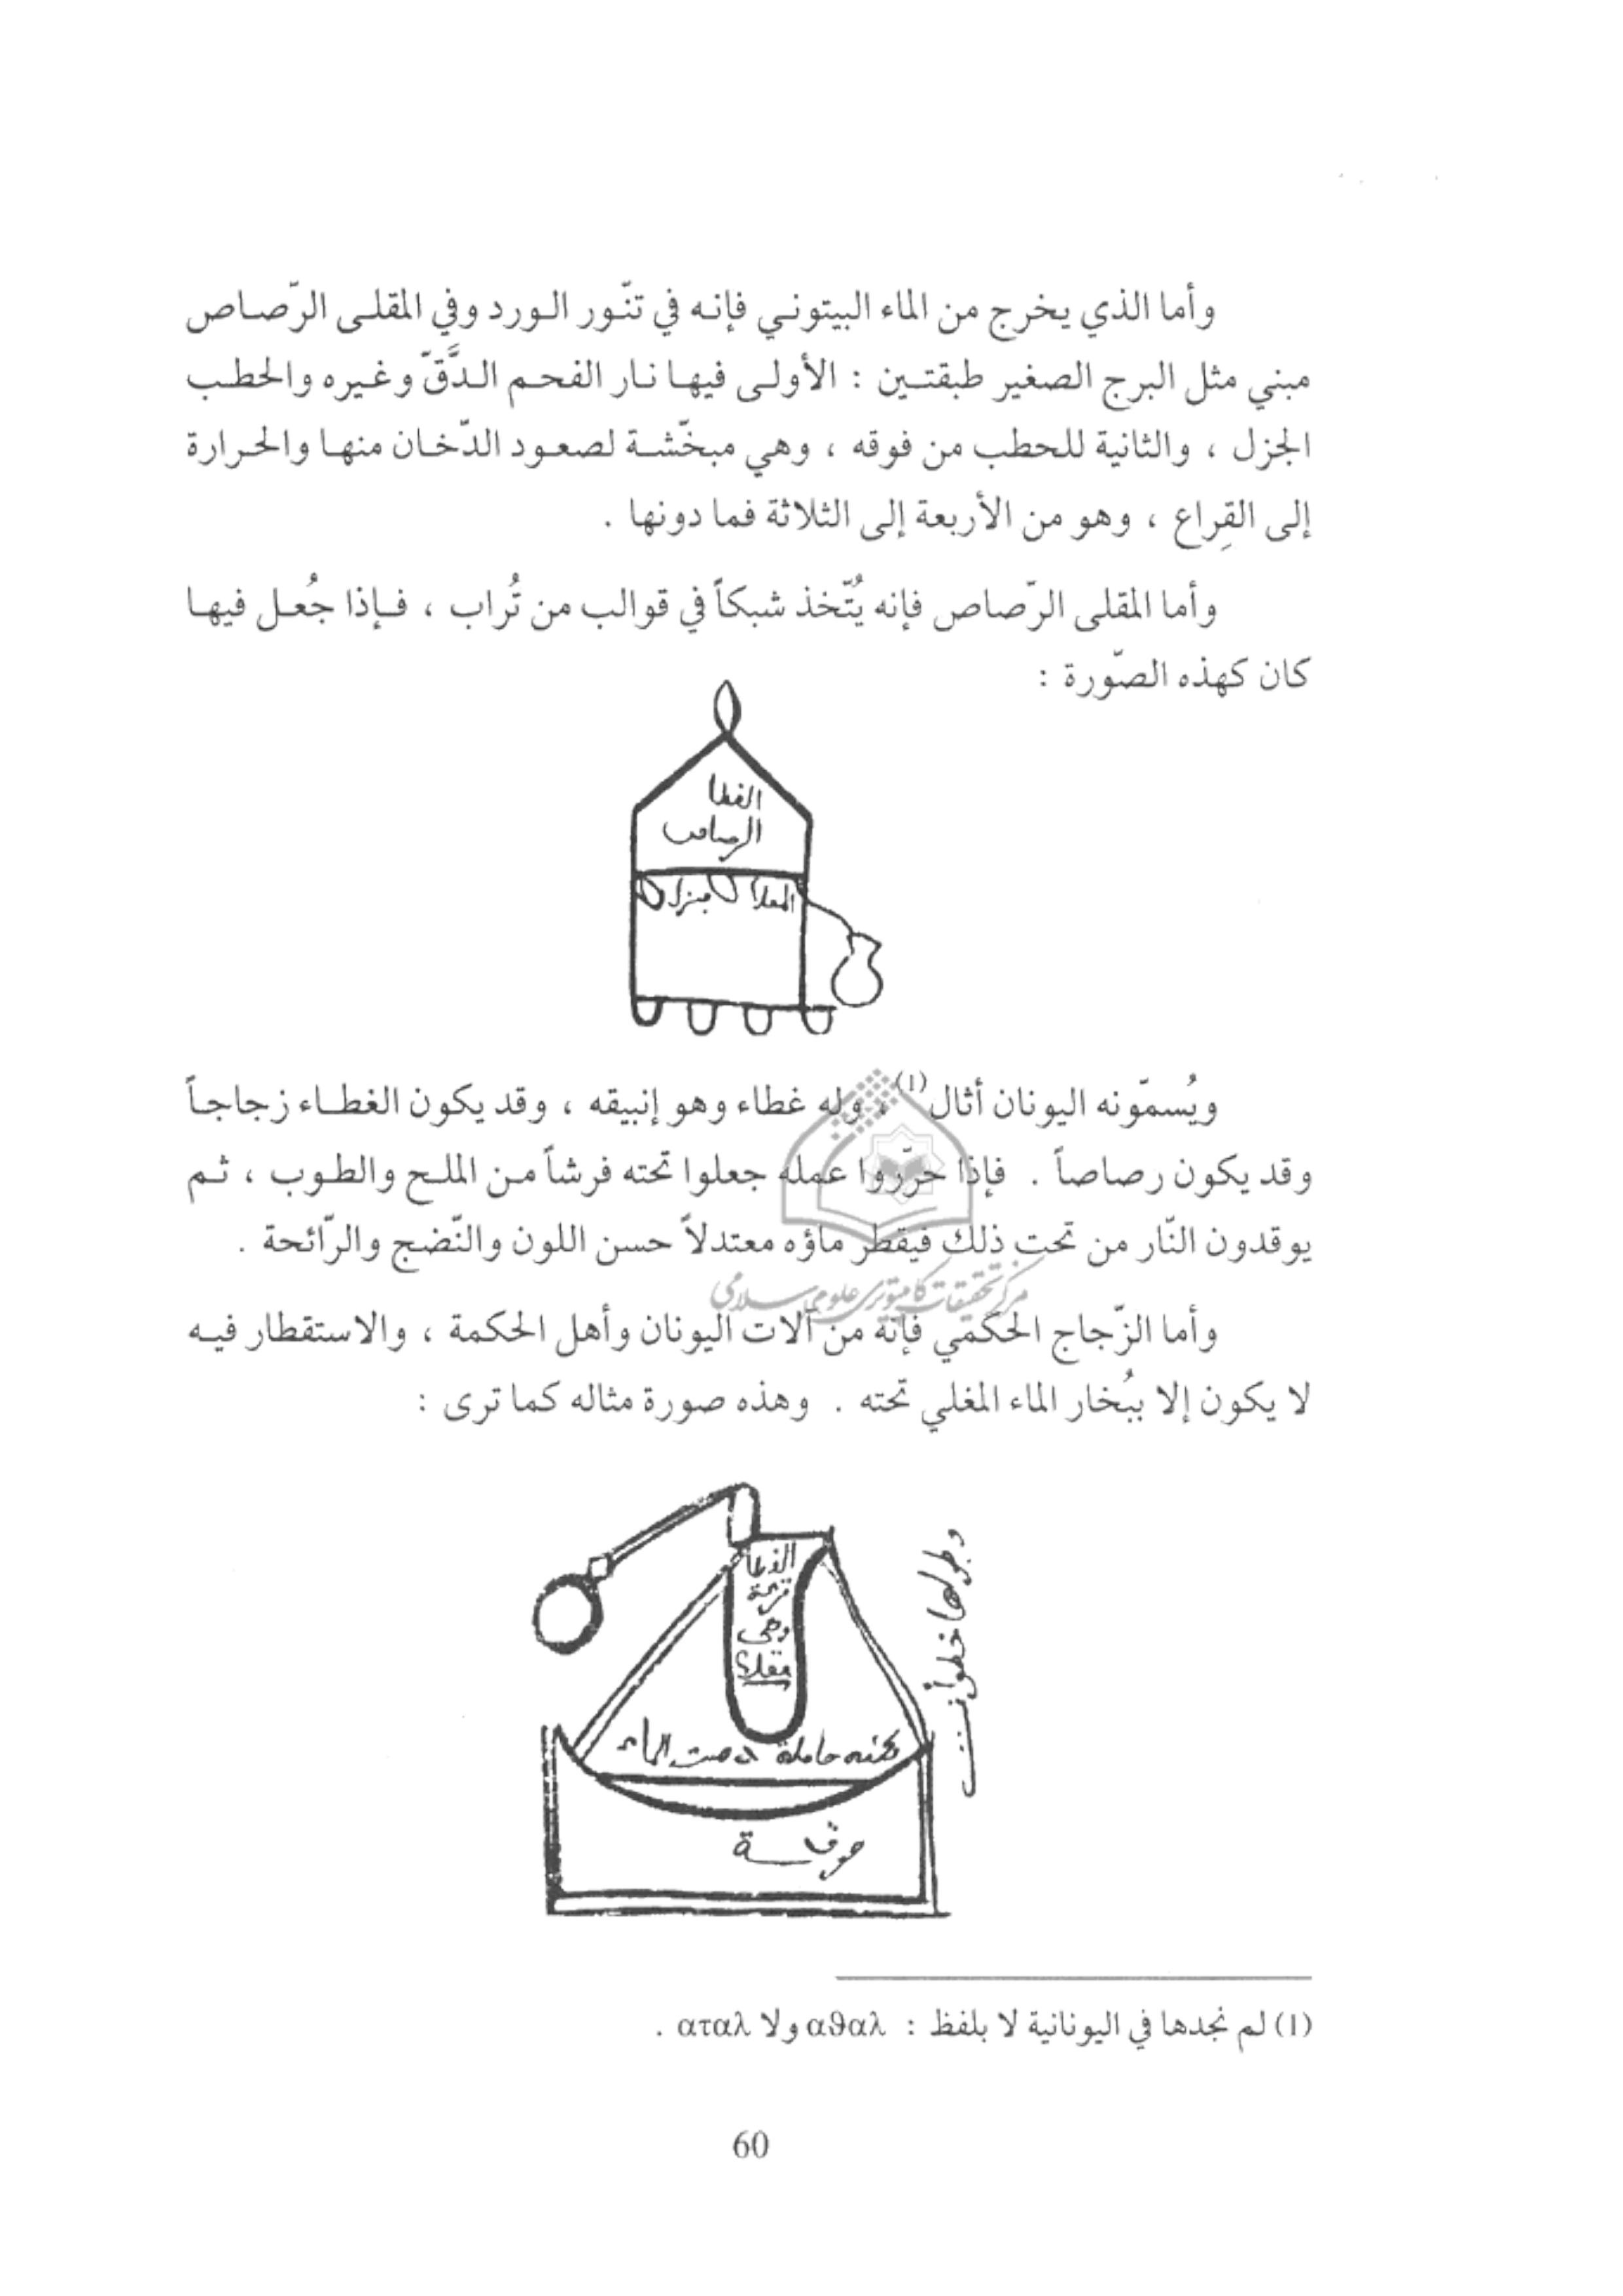 وأما الذي يخرج من الماء البيتوني فإنه في تنّور الورد وفي المقلى الرّصاص
مبني مثل البرج الصغير طبقتين : الأولى فيها نار الفحم الدَّقّ وغيره والحطب
الجزل ، والثانية للحطب من فوقه ، وهي مبخّشة لصعود الدّخان منها والحرارة
إلى القِراع ، وهو من الأربعة إلى الثلاثة فما دونها .
وأما المقلى الرّصاص فإنه يُتّخذ شبكاً في قوالب من تُراب ، فإذا جُعل فيها
كان كهذه الصّورة :
الغطا
الرصاص
ويُسمّونه اليونان أثال(1) ، وله غطاء وهو إنبيقه ، وقد يكون الغطاء زجاجاً
وقد يكون رصاصاً . فإذا حرّروا عمله جعلوا تحته فرشاً من الملح والطوب ، ثم
يوقدون النّار من تحت ذلك فيقطر ماؤه معتدلاً حسن اللون والنّضج والرّائحة .
مركز تحقيقات كامپيوترى علوم اسلامى
وأما الزّجاج الحكمي فإنه من آلات اليونان وأهل الحكمة ، والاستقطار فيه
لا يكون إلا ببُخار الماء المغلي تحته . وهذه صورة مثاله كما ترى :
قرعة
وهى
(1) لم نجدها في اليونانية لا بلفظ : αϑαλ ولا αταλ .
60